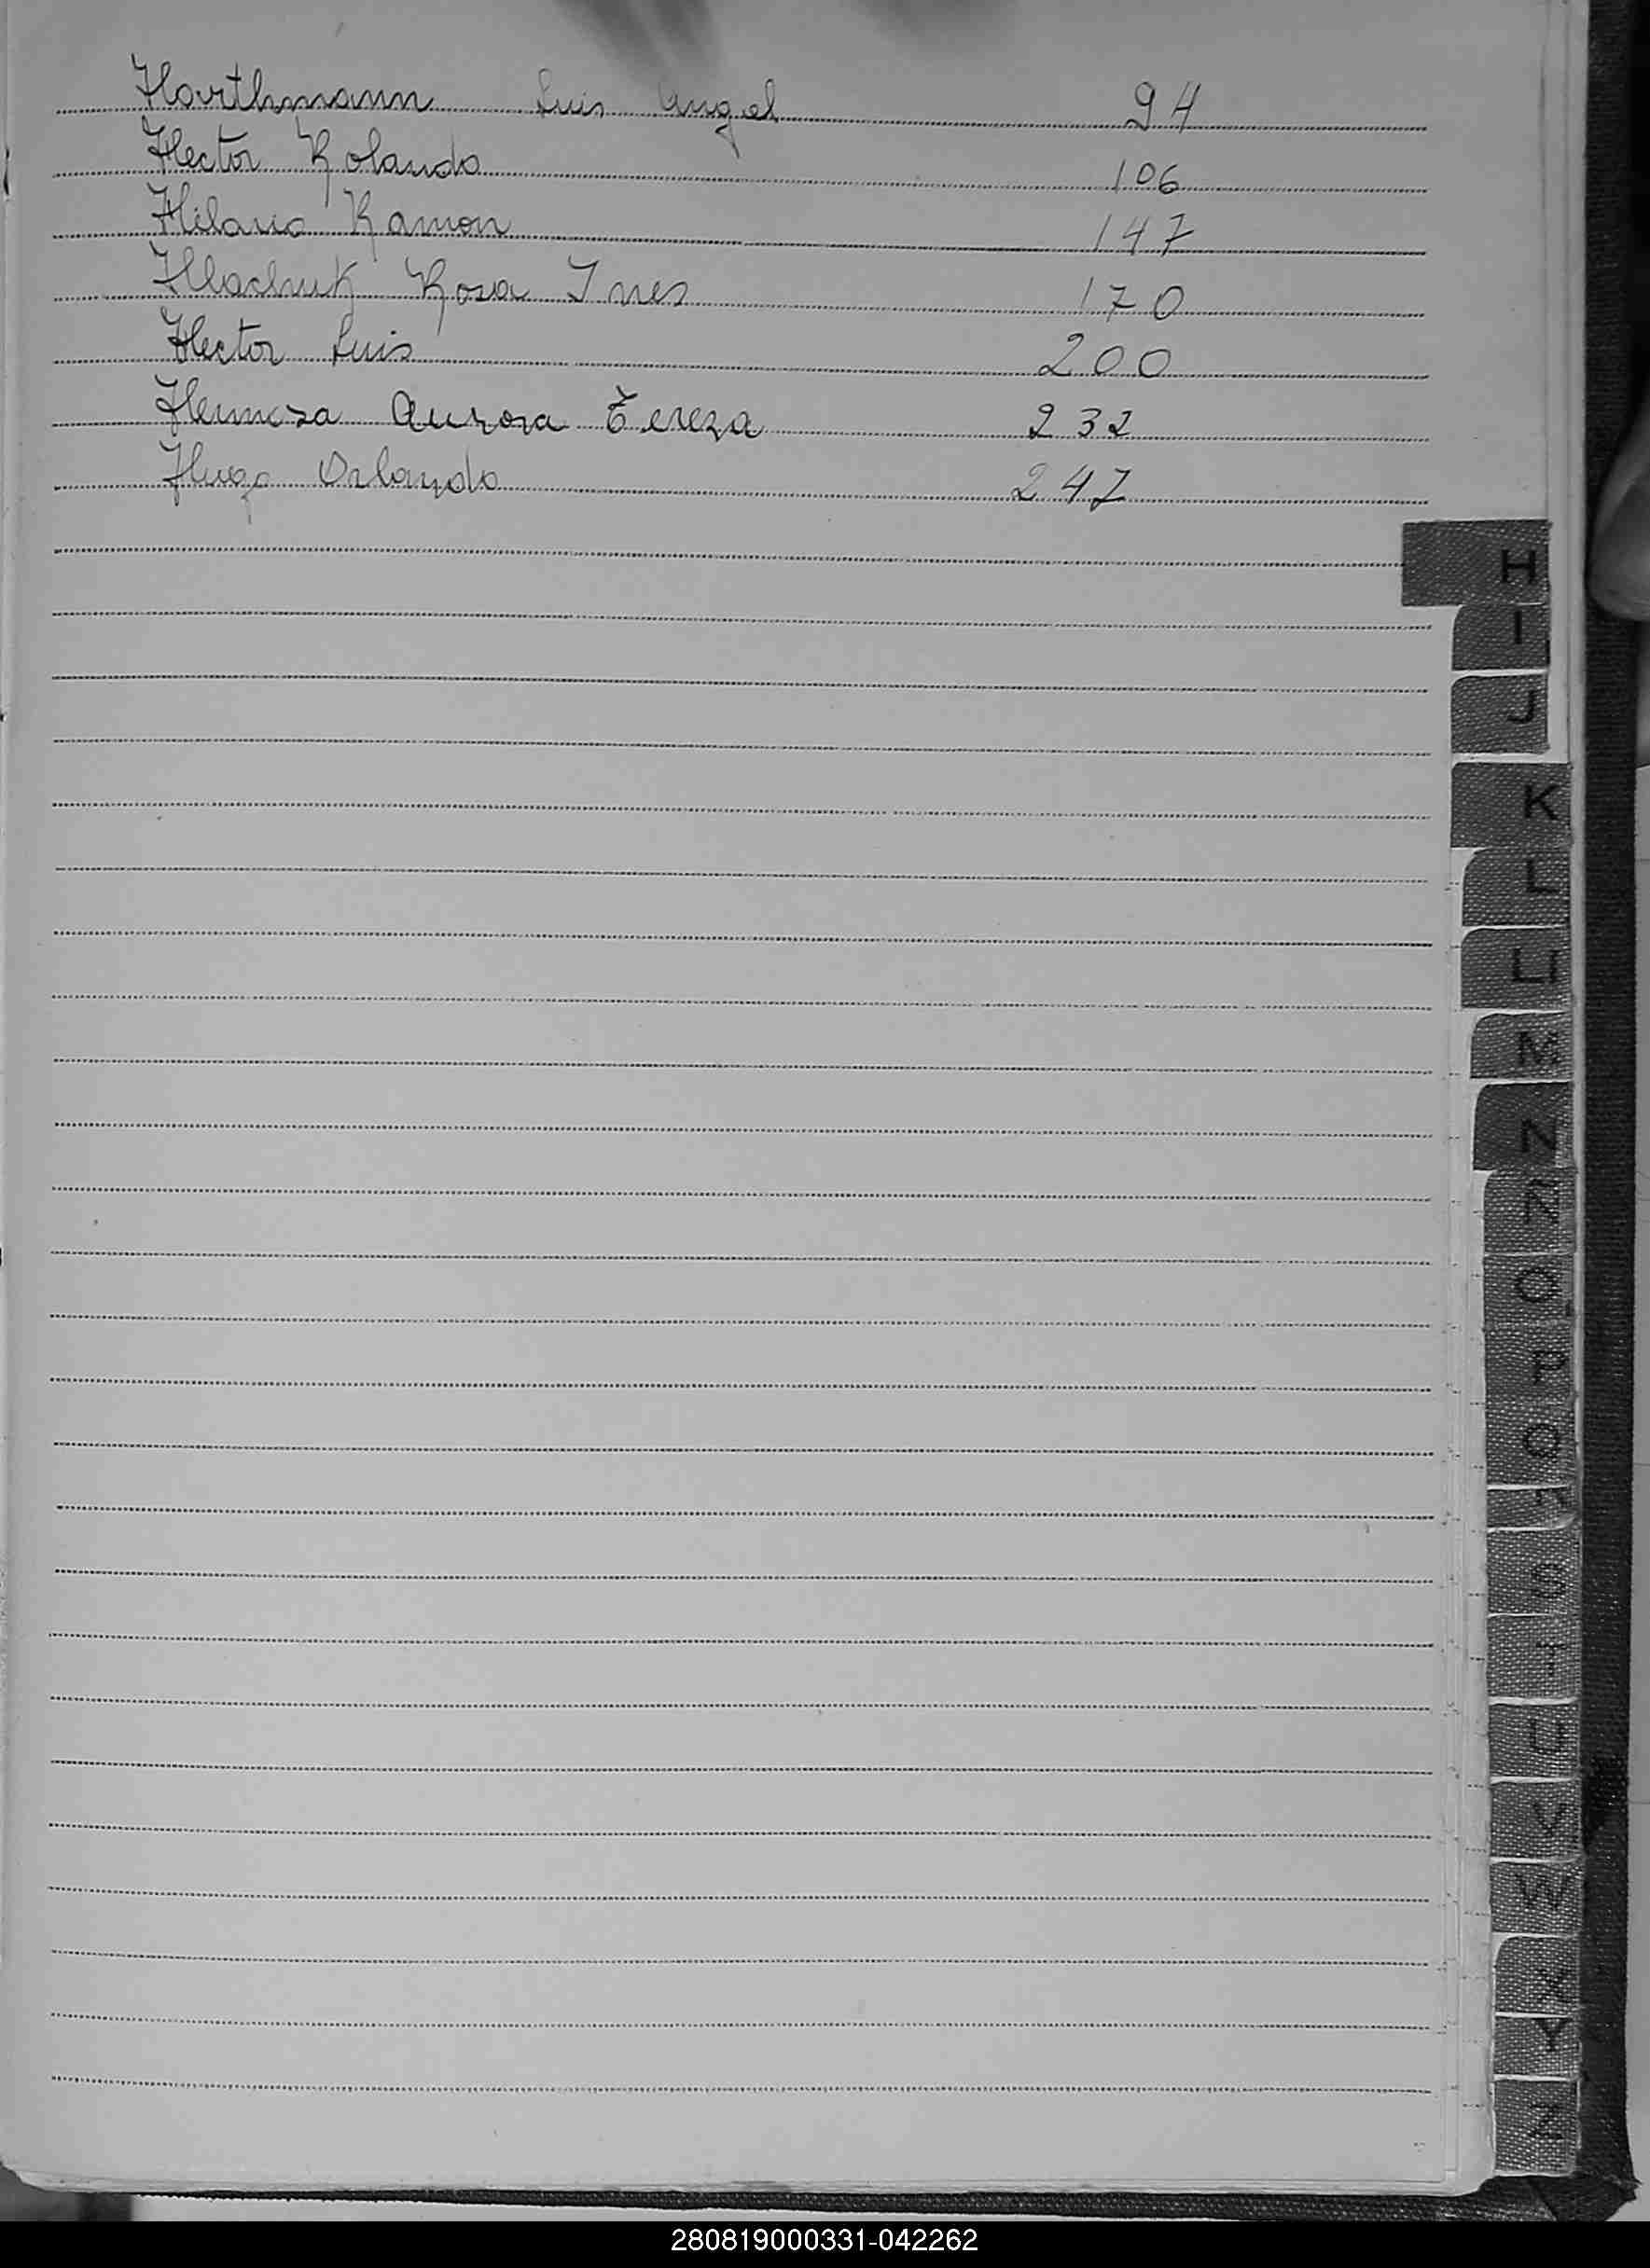 Harthmann Luis Angel 94
Hector Rolando 106
Hilario Ramon 147
Hlachuk Rosa Ines 170
Hector Luis 200
Aurora Tereza 232
Hugo Orlando 247
H
I
J
K
L
LL
M
N
Ñ
O
P
Q
R
S
T
U
V
W
X
Y
Z
280819000331-042262